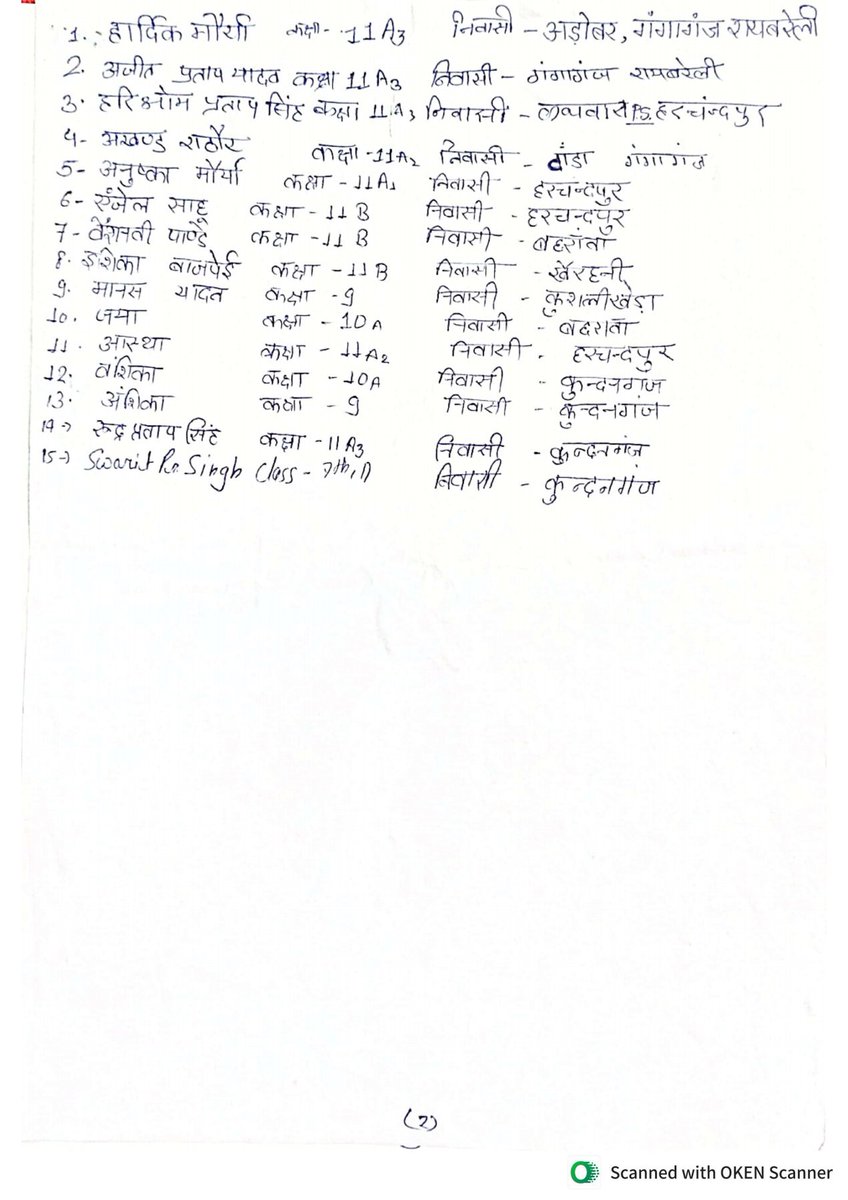 1. हार्दिक मौर्या कक्षा- 11A3 निवासी - अड़ोबर, गंगागंज रायबरेली
2. अजीत प्रताप यादव कक्षा 11A3 निवासी - गंगागंज रायबरेली
3. हरिओम प्रताप सिंह कक्षा 11A3 निवासी - PS हरचंदपुर
4- अखण्ड राठौर कक्षा -11A2 निवासी - टांडा गंगागंज
5- अनुष्का मौर्या कक्षा - 11A1 निवासी - हरचन्दपुर
6- एंजेल साहू कक्षा - 11 B निवासी - हरचन्दपुर
7- पाण्डे कक्षा - 11 B निवासी - बहरांवा
8. इंशिका बाजपेई कक्षा - 11B निवासी - खैरहनी
9. मानस यादव कक्षा -9 निवासी - कुशलीखेड़ा
10. जया कक्षा - 10A निवासी - बहरावाँ
11. आस्था कक्षा - 11A2 निवासी - हरचन्दपुर
12. वंशिका कक्षा -10A निवासी - कुन्दनगंज
13. अंशिका कक्षा - 9 निवासी - कुन्दनगंज
14-> रूद्र प्रताप सिंह कक्षा - 11A3 निवासी - कुन्दनगंज
15-> Swarit Pr. Singh Class - 7th, D निवासी - कुन्दनगंज
(2)
Scanned with OKEN Scanner